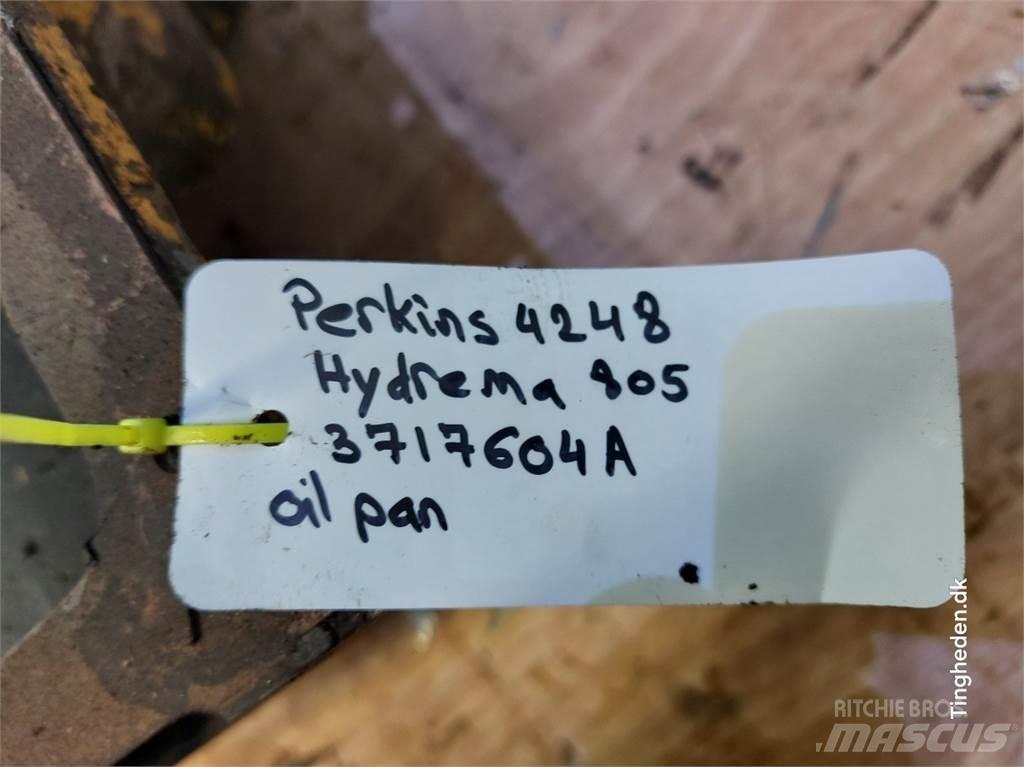 Perkins 4248
Hydrema 805
3717604A
oil pan
Tingheden.dk
RITCHIE BRO
MASCUS